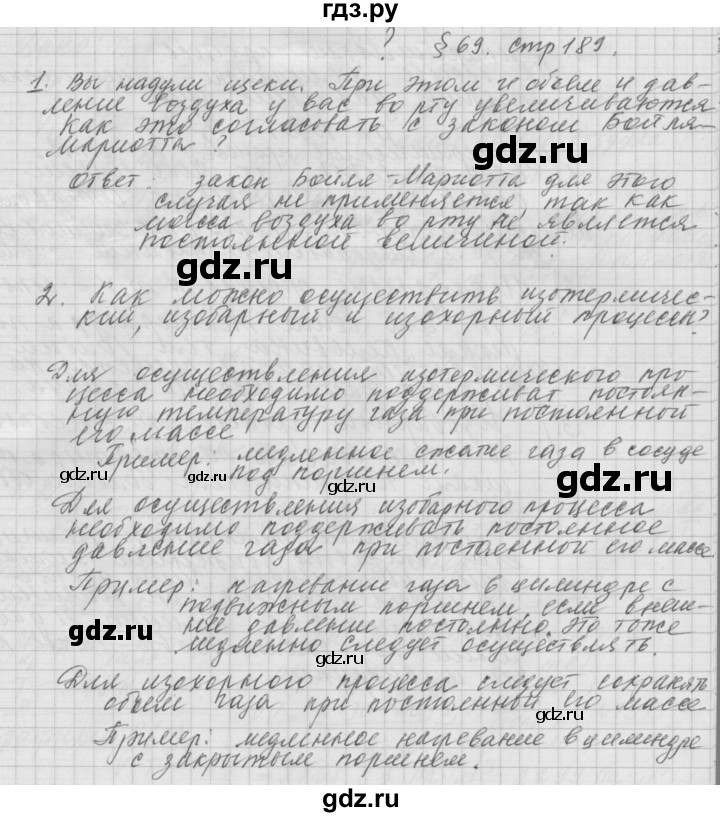 гдз.ру
? § 69. стр 189.
1. Вы надули щеки. При этом и объем и дав-
ление воздуха у вас во рту увеличиваются
Как это согласовать с законом Бойля-
Мариотта?
Ответ: закон Бойля-Мариотта для этого
случая не применяется так как
масса воздуха во рту не является
постоянной величиной.
gdz.ru
2. Как можно осуществить изотермичес-
кий, изобарный и изохорный процессы?
Для осуществления изотермического про-
цесса необходимо поддерживат постоян-
gdz.ru
ную температуру газа при постоянной
его массе
Пример: медленное сжатие газа в сосуде
под поршнем.
gdz.ru gdz.ru gdz.ru
Для осуществления изобарного процесса
необходимо поддерживать постоянное
gdz.ru
давление газа при постоянной его массе
Пример: нагревание газа в цилиндре с
подвижным поршнем, если внеш-
ние давление постоянно. Это тоже
gdz.ru
медленно следует осуществлять.
gdz.ru
Для изохорного процесса следует сохранять
объем газа при постоянный его массе
gdz.ru
Пример: медленное нагревание в цилиндре
с закрытым поршнем.
gdz.ru